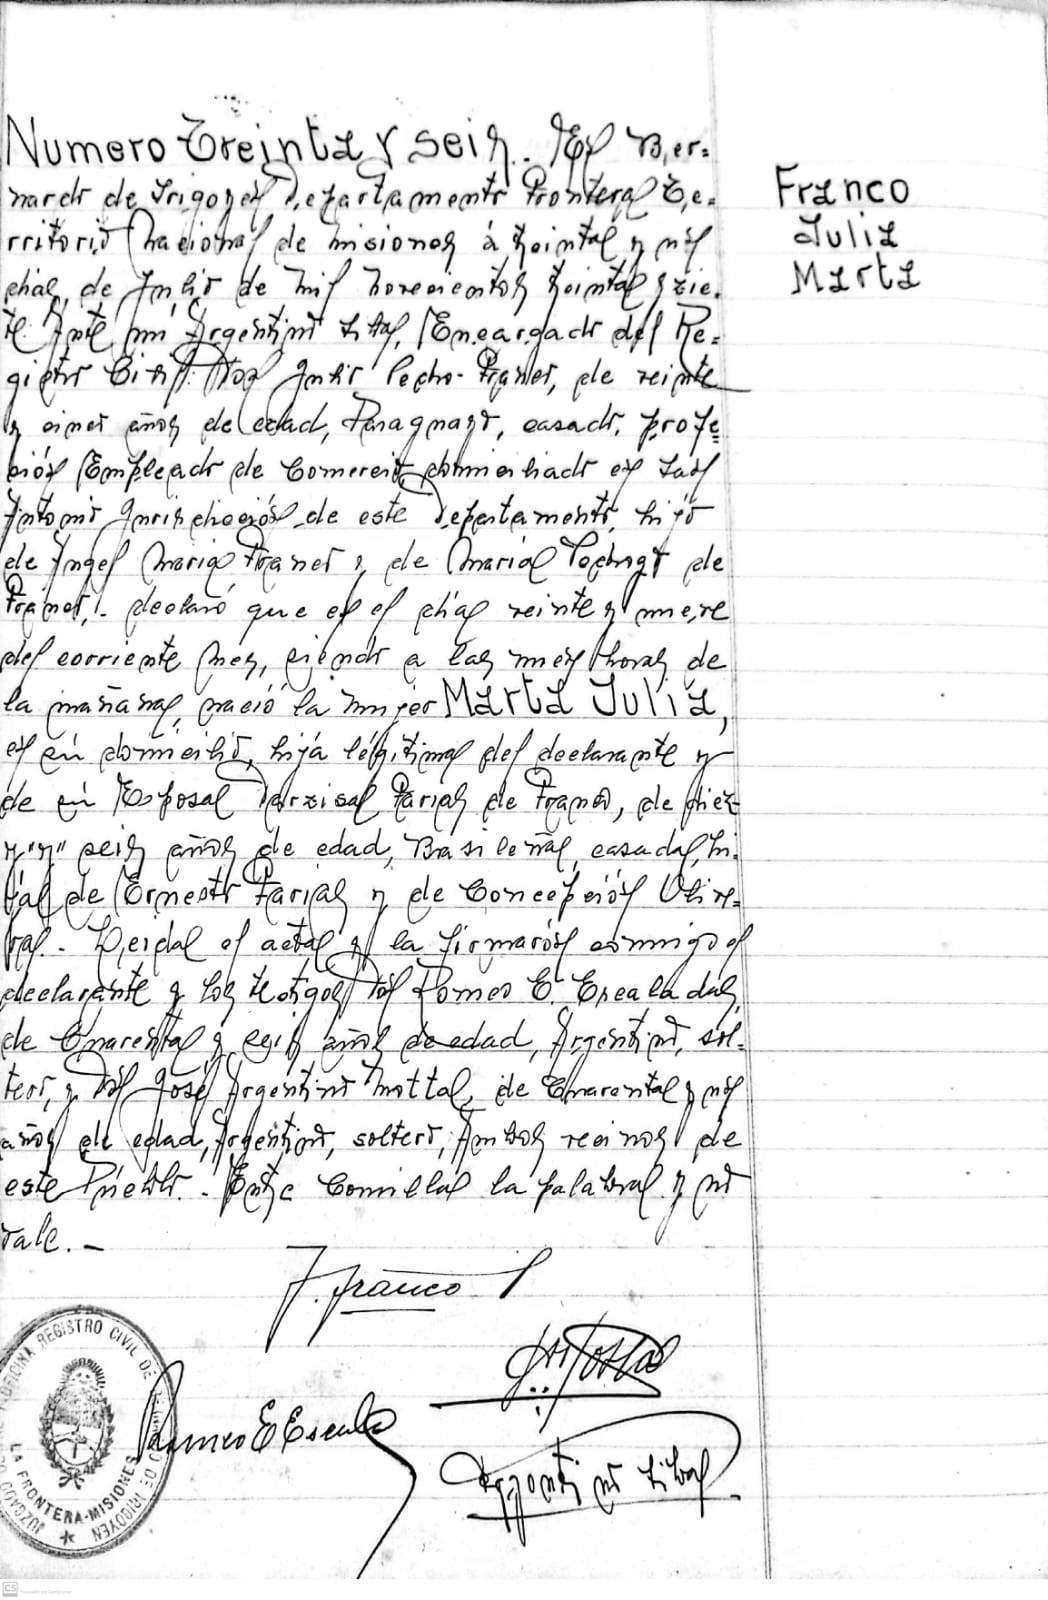 Numero Treinta y seis. En Ber=
nardo de Irigoyen Departamento Frontera Te=
rritorio Nacional de Misiones á treinta y un
dias, de Julio de mil novecientos treinta y sie=
te. Ante mi Argentino Encargado del Re=
gistro Civil: Don Julio Pedro Franco, de veinte
y cinco años de edad, Paraguayo, casado, profe=
sión Empleado de Comercio, domiciliado en San
Antonio Jurisdicción de este Departamento, hijo
de Angel Maria Franco y de Maria de
Franco, declaró que en el dia veinte y nueve
del corriente mes, siendo a las nueve horas de
la mañana, nació la mujer Marta Julia,
en su domicilio, hija legitima del declarante y
de su Esposa Farias de Franco, de diez
y "y" seis años de edad, Brasileña, casada, hi=
ja de Ernesto Farias y de Concepción Olive=
ra. Leida el acta y la firmarón conmigo el
declarante y los testigos Don Romeo E. Escalada,
de Cuarenta y seis años de edad, Argentino, sol=
tero, y Don José Argentino Motta, de Cuarenta y un
años de edad, Argentino, soltero, Ambos vecinos de
este Pueblo. Entre Comillas la palabra y no
vale.
Franco
Julia
Marta
J. Franco
Romeo E Escalada
Argentino
OFICINA REGISTRO CIVIL DE BERNARDO DE IRIGOYEN
JUZGADO
LA FRONTERA-MISIONES
CS